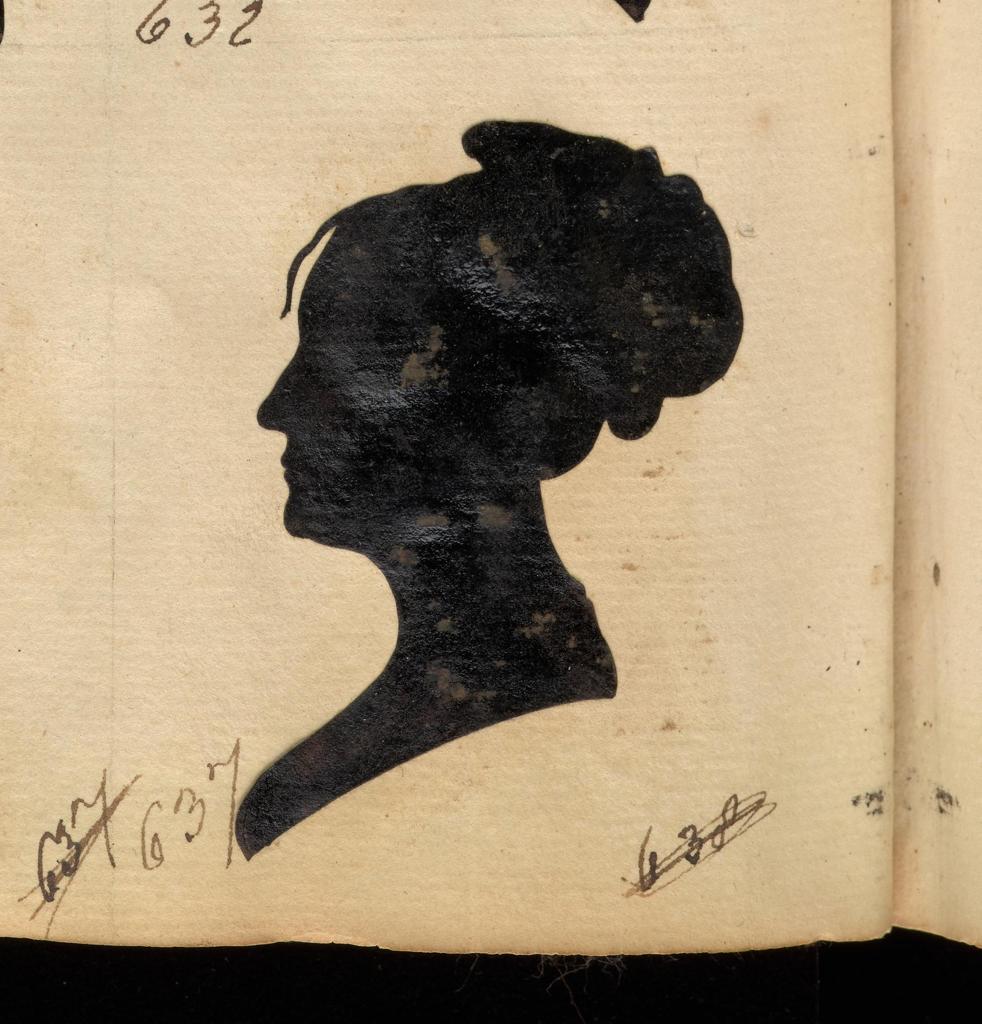 632
637 637 638